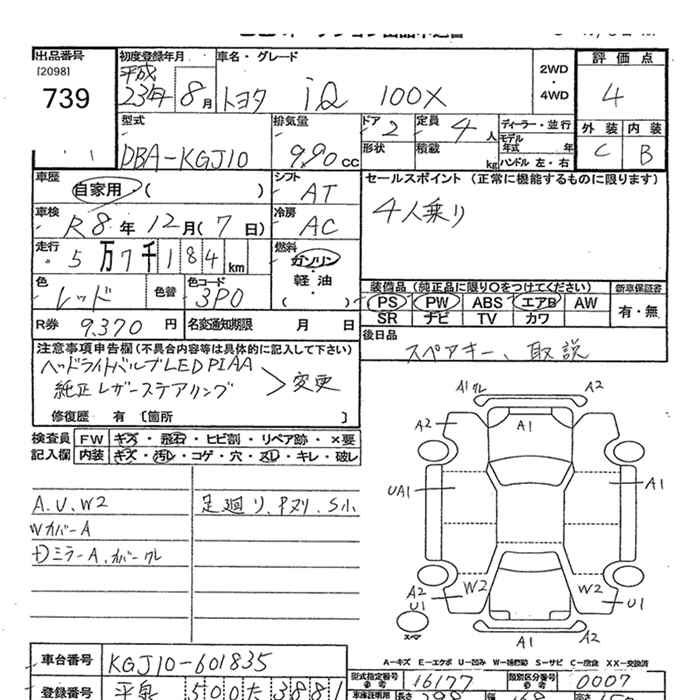 出品番号 [2098] 739
初度登録年月 平成 23年 8月
車名・グレード トヨタ iQ 100X
2WD ・ 4WD
評価点 4
外装 C 内装 B
型式 DBA-KGJ10
排気量 990cc
ドア 2 定員 4人
形状 積載 kg
ディーラー・並行
モデル年式 年
ハンドル 左・右
車歴 自家用・( )
シフト AT
セールスポイント (正常に機能するものに限ります)
4人乗り
車検 R8年12月(7日)
冷房 AC
走行 5万7千184km
燃料 ガソリン・軽油・( )
色 レッド 色替 色コード 3P0
装備品 (純正品に限り○をつけてください) 新車保証書
PS PW ABS エアB AW 有・無
SR ナビ TV カワ
R券 9,370円 名変通知期限 月 日
後日品 スペアキー、取説
注意事項申告欄 (不具合内容等は具体的に記入して下さい)
ヘッドライトバルブLED PIAA
純正レザーステアリング > 変更
修復歴 有 [箇所 ]
検査員 FW キズ・飛石・ヒビ割・リペア跡・×要
記入欄 内装 キズ・汚レ・コゲ・穴・スレ・キレ・破レ
A.U.W2 足廻り、Pヌリ.S小
WカバーA
A1 A2
A2
UA1 A1
W2 W2
A2 U1 U1
スペア
A1 A2
A-キズ E-エクボ U-凹み W-補修跡 S-サビ C-腐食 XX-交換済
車台番号 KGJ10-601835
型式指定番号 16177 類別区分番号 0007
登録番号 500 た 3881